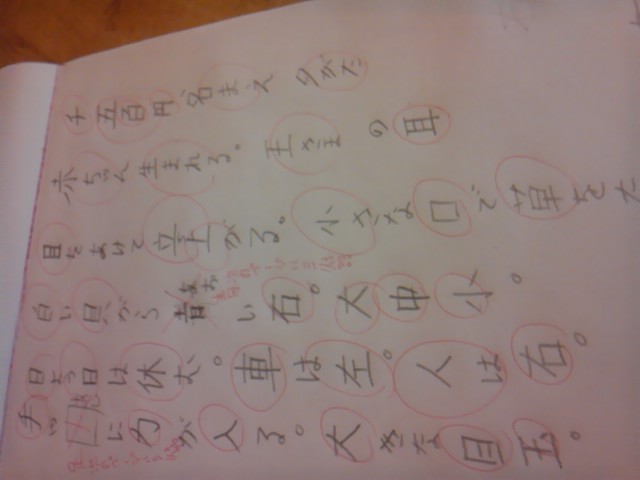 千五百円、名まえ 夕がた
赤ちゃん生まれる。 王さま の 耳
目をあけて立上がる。 小さな口で草をた
白い貝がら い右。大中小。
日よう日は休む。車は左。人は右。
に力が入る。大きな目玉。